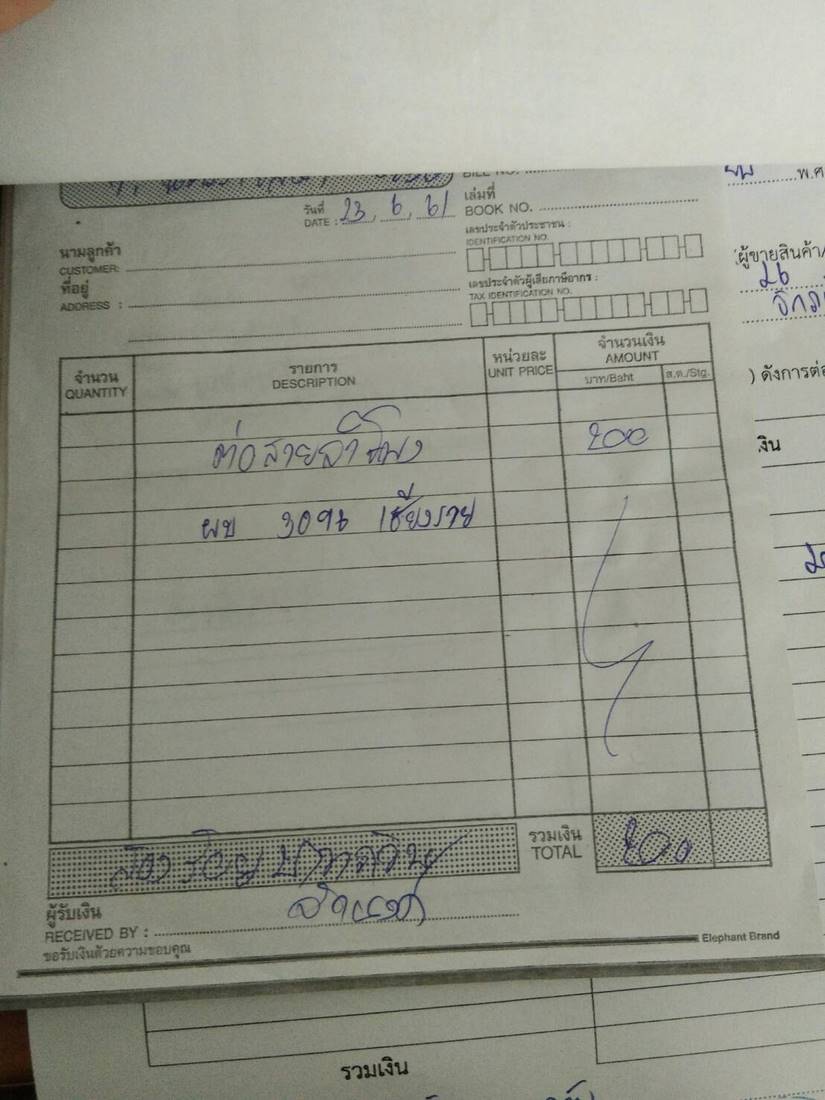 วันที่
DATE : 23, 6, 61
เล่มที่
BOOK NO.
พ.ศ
นามลูกค้า
CUSTOMER:
เลขประจำตัวประชาชน :
IDENTIFICATION NO.
ที่อยู่
ADDRESS :
เลขประจำตัวผู้เสียภาษีอากร :
TAX IDENTIFICATION NO.
ผู้ขายสินค้า/
จำนวน
QUANTITY
รายการ
DESCRIPTION
หน่วยละ
UNIT PRICE
จำนวนเงิน
AMOUNT
บาท/Baht
ส.ต./Stg.
) ดังการต่อ
เงิน
ต่อสายลำโพง 200
ผข 3096 เชียงราย
สองร้อยบาทถ้วน
รวมเงิน
TOTAL 200
ผู้รับเงิน
RECEIVED BY :
ขอรับเงินด้วยความขอบคุณ
Elephant Brand
รวมเงิน